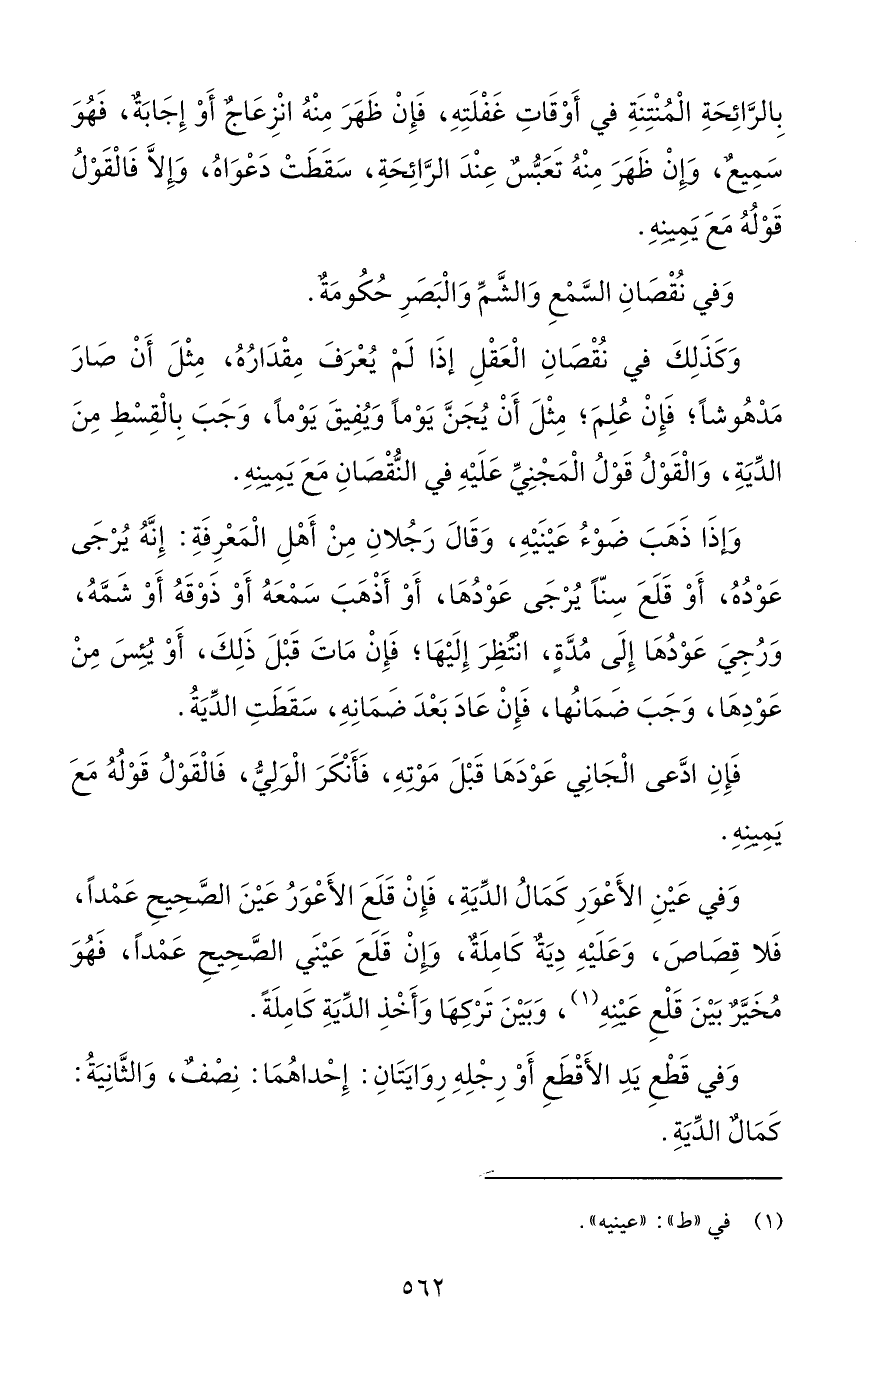 بِالرَّائِحَةِ الْمُنْتِنَةِ في أَوْقَاتِ غَفْلَتِهِ، فَإِنْ ظَهَرَ مِنْهُ انْزِعَاجٌ أَوْ إِجَابَةٌ، فَهُوَ
سَمِيعٌ، وَإِنْ ظَهَرَ مِنْهُ تَعَبُّسٌ عِنْدَ الرَّائِحَةِ، سَقَطَتْ دَعْوَاهُ، وَإِلاَّ فَالْقَوْلُ
قَوْلُهُ مَعَ يَمِينِهِ.
وَفي نُقْصَانِ السَّمْعِ وَالشَّمِّ وَالْبَصَرِ حُكُومَةٌ.
وَكَذَلِكَ في نُقْصَانِ الْعَقْلِ إذَا لَمْ يُعْرَفَ مِقْدَارُهُ، مِثْلَ أَنْ صَارَ
مَدْهُوشاً؛ فَإِنْ عُلِمَ؛ مِثْلَ أَنْ يُجَنَّ يَوْماً وَيُفِيقَ يَوْماً، وَجَبَ بِالْقِسْطِ مِنَ
الدِّيَةِ، وَالْقَوْلُ قَوْلُ الْمَجْنِيِّ عَلَيْهِ في النُّقْصَانِ مَعَ يَمِينِهِ.
وَإِذَا ذَهَبَ ضَوْءُ عَيْنَيْهِ، وَقَالَ رَجُلانِ مِنْ أَهْلِ الْمَعْرِفَةِ: إِنَّهُ يُرْجَى
عَوْدُهُ، أَوْ قَلَعَ سِنّاً يُرْجَى عَوْدُهَا، أَوْ أَذْهَبَ سَمْعَهُ أَوْ ذَوْقَهُ أَوْ شَمَّهُ،
وَرُجِيَ عَوْدُهَا إِلَى مُدَّةٍ، انْتُظِرَ إِلَيْهَا؛ فَإِنْ مَاتَ قَبْلَ ذَلِكَ، أَوْ يُئِسَ مِنْ
عَوْدِهَا، وَجَبَ ضَمَانُها، فَإِنْ عَادَ بَعْدَ ضَمَانِهِ، سَقَطَتِ الدِّيَةُ.
فَإِنِ ادَّعى الْجَانِي عَوْدَهَا قَبْلَ مَوْتِهِ، فَأَنْكَرَ الْوَلِيُّ، فَالْقَوْلُ قَوْلُهُ مَعَ
يَمِينِهِ.
وَفي عَيْنِ الأَعْوَرِ كَمَالُ الدِّيَةِ، فَإِنْ قَلَعَ الأَعْوَرُ عَيْنَ الصَّحِيحِ عَمْداً،
فَلا قِصَاصَ، وَعَلَيْهِ دِيَةٌ كَامِلَةٌ، وَإِنْ قَلَعَ عَيْنَي الصَّحِيحِ عَمْداً، فَهُوَ
مُخَيَّرٌ بَيْنَ قَلْعِ عَيْنِهِ(١)، وَبَيْنَ تَرْكِهَا وَأَخْذِ الدِّيَةِ كَامِلَةً.
وَفي قَطْعِ يَدِ الأَقْطَعِ أَوْ رِجْلِهِ رِوَايَتَانِ: إِحْداهُمَا: نِصْفٌ، وَالثَّانِيَةُ:
كَمَالٌ الدِّيَةِ.
(١) في «ط»: «عينيه».
٥٦٢